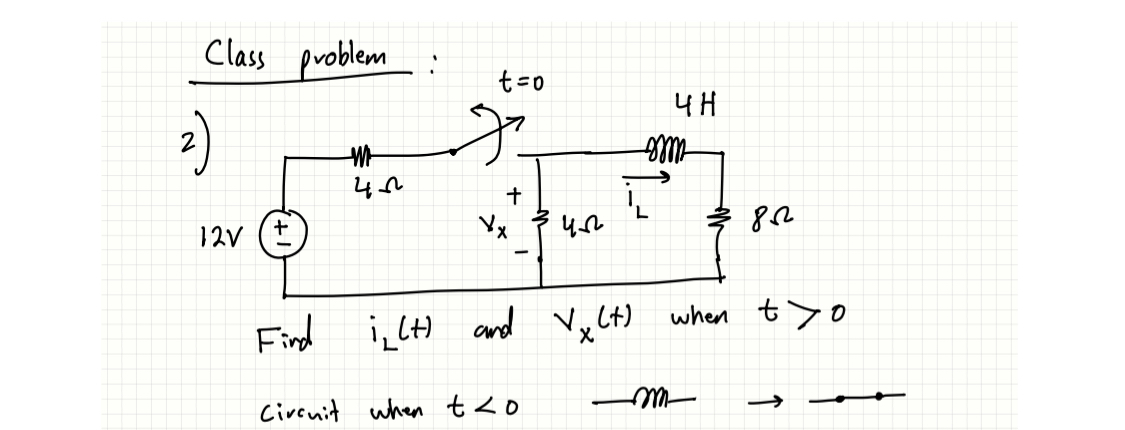 Class problem :
t=0
2)
4H
4Ω
12V
+
-
+
Vx
-
4Ω
iL
8Ω
Find iL(t) and Vx(t) when t > 0
Circuit when t < 0 →